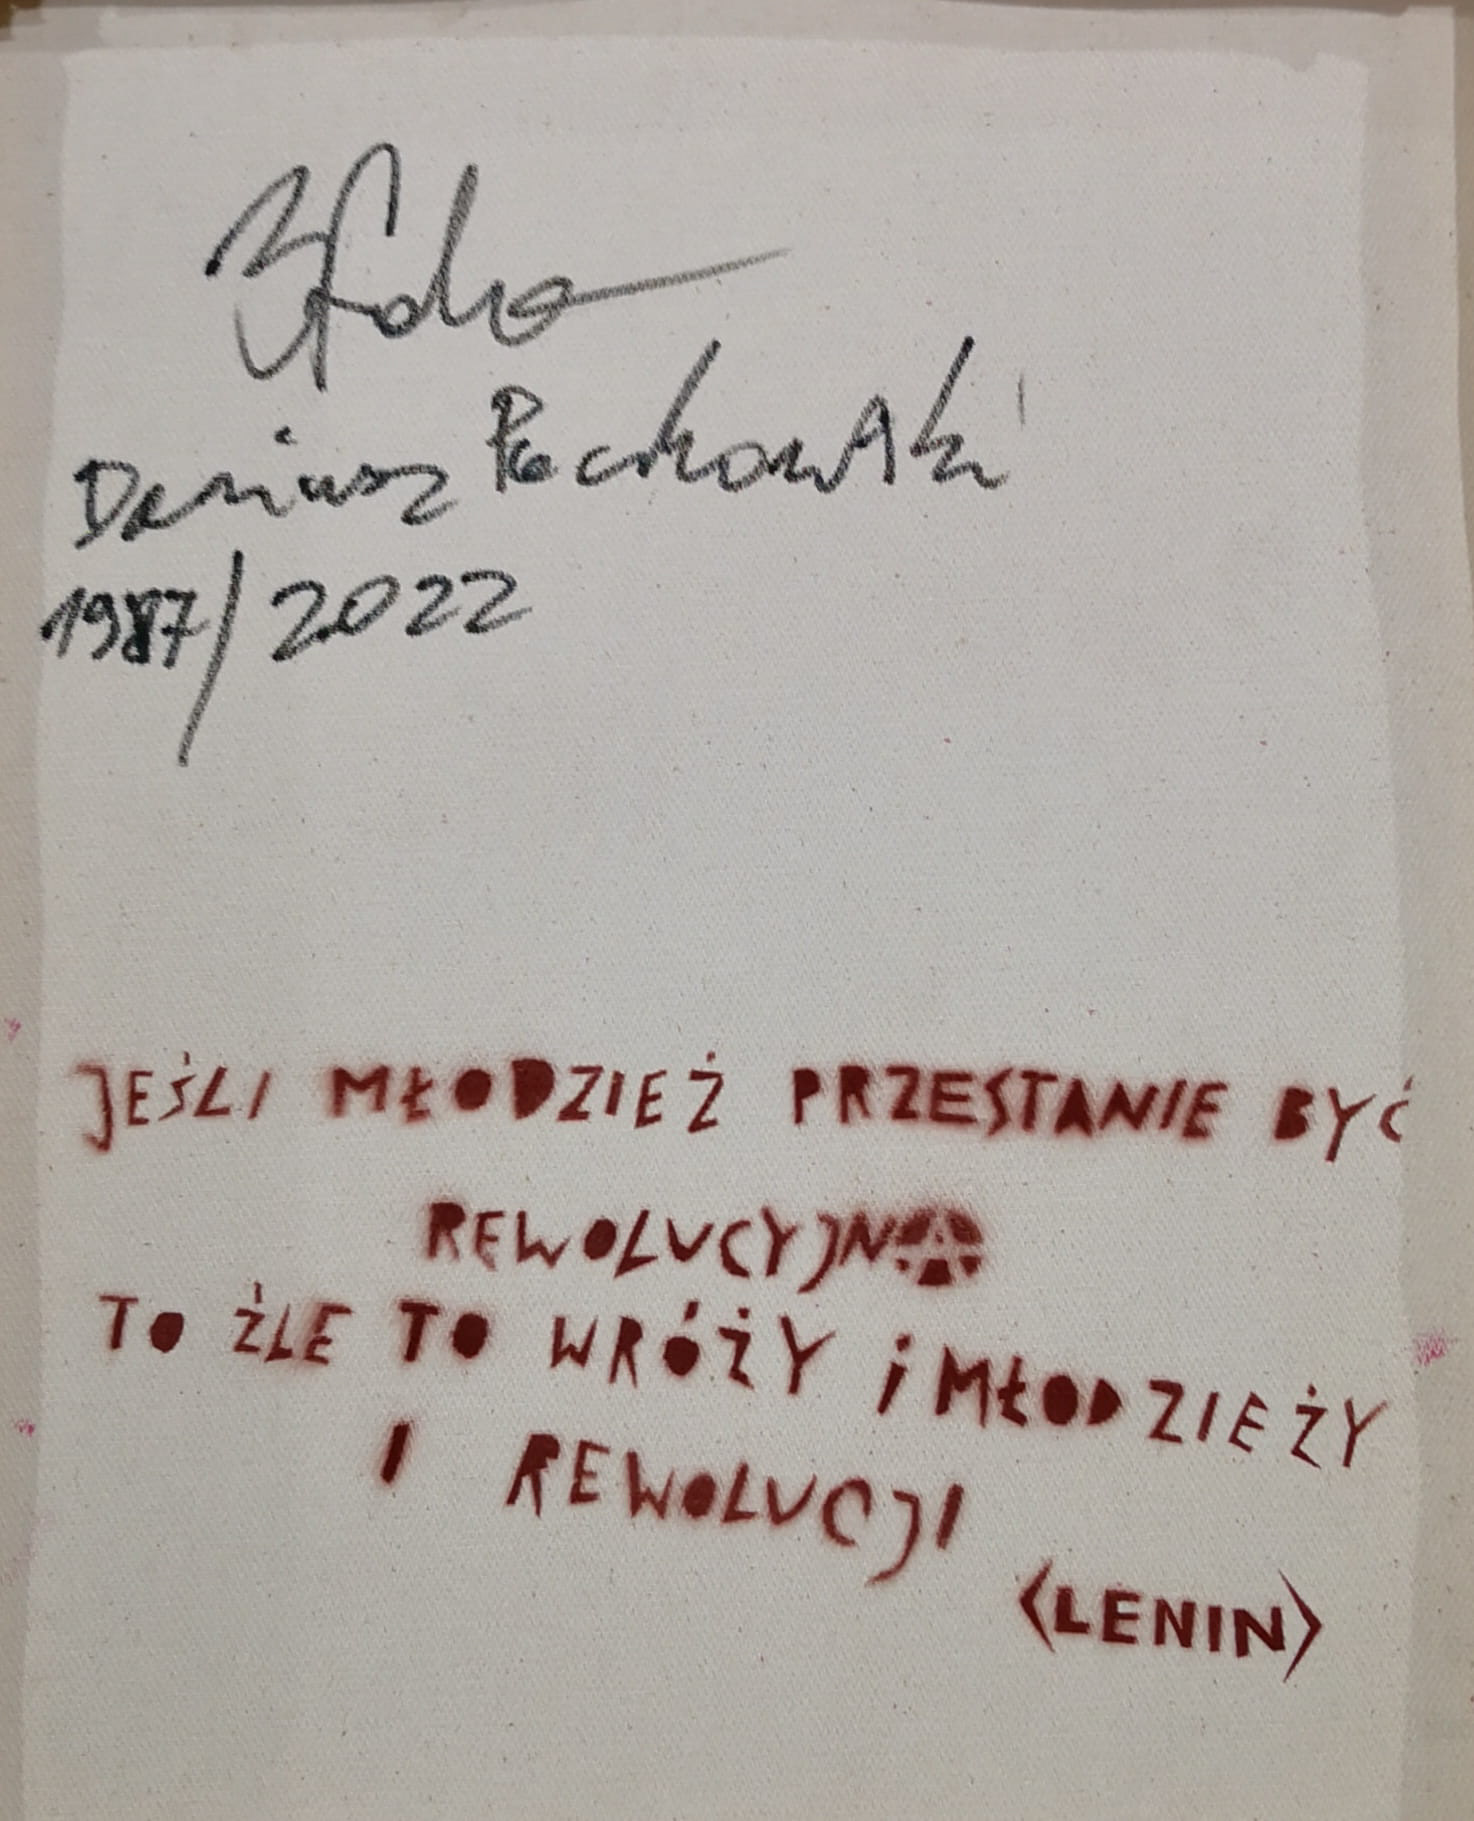 Dariusz Paczkowski
1987/2022
JEŚLI MŁODZIEŻ PRZESTANIE BYĆ
REWOLUCYJNA
TO ŹLE TO WRÓŻY i MŁODZIEŻY
I REWOLUCJI
<LENIN>